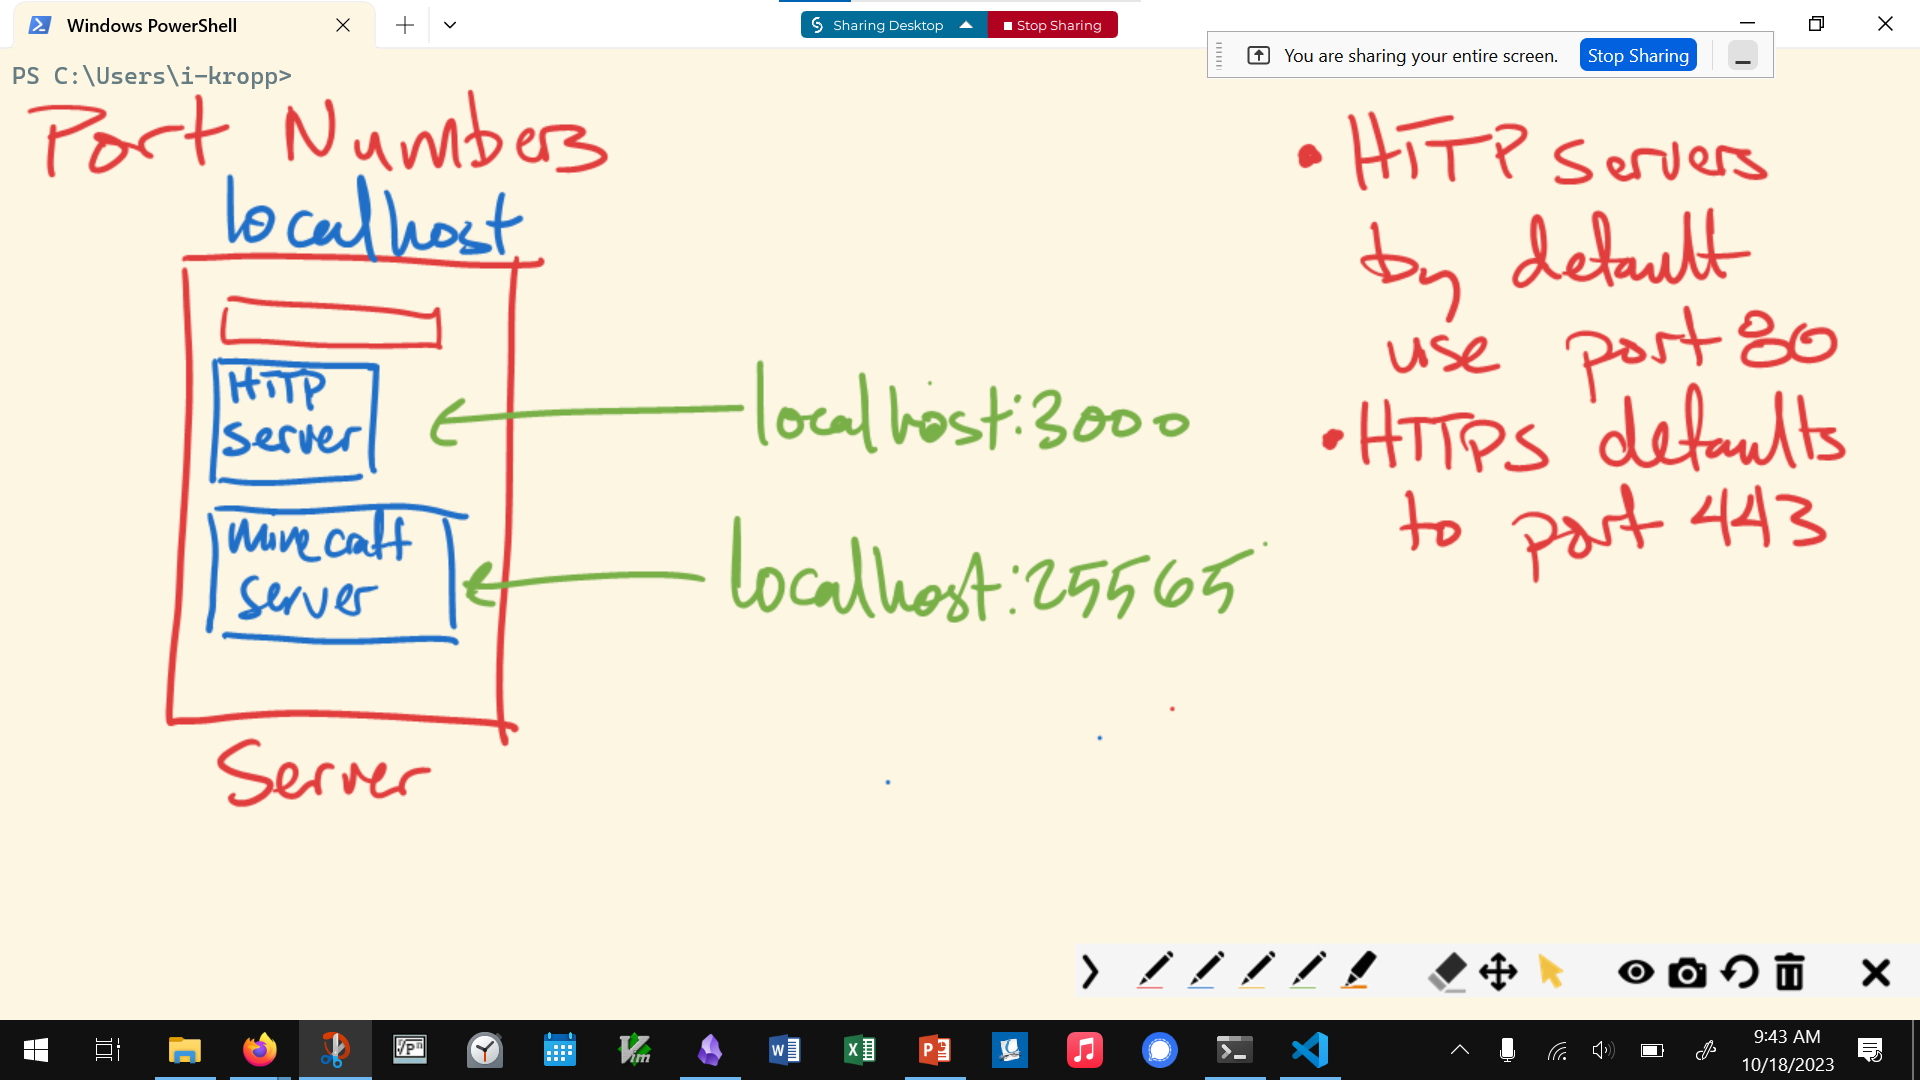 Windows PowerShell
Sharing Desktop
Stop Sharing
You are sharing your entire screen.
Stop Sharing
PS C:\Users\i-kropp>
Port Numbers
localhost
HTTP
server
minecraft
server
Server
localhost:3000
localhost:25565
• HTTP servers
by default
use port 80
• HTTPS defaults
to port 443
9:43 AM
10/18/2023